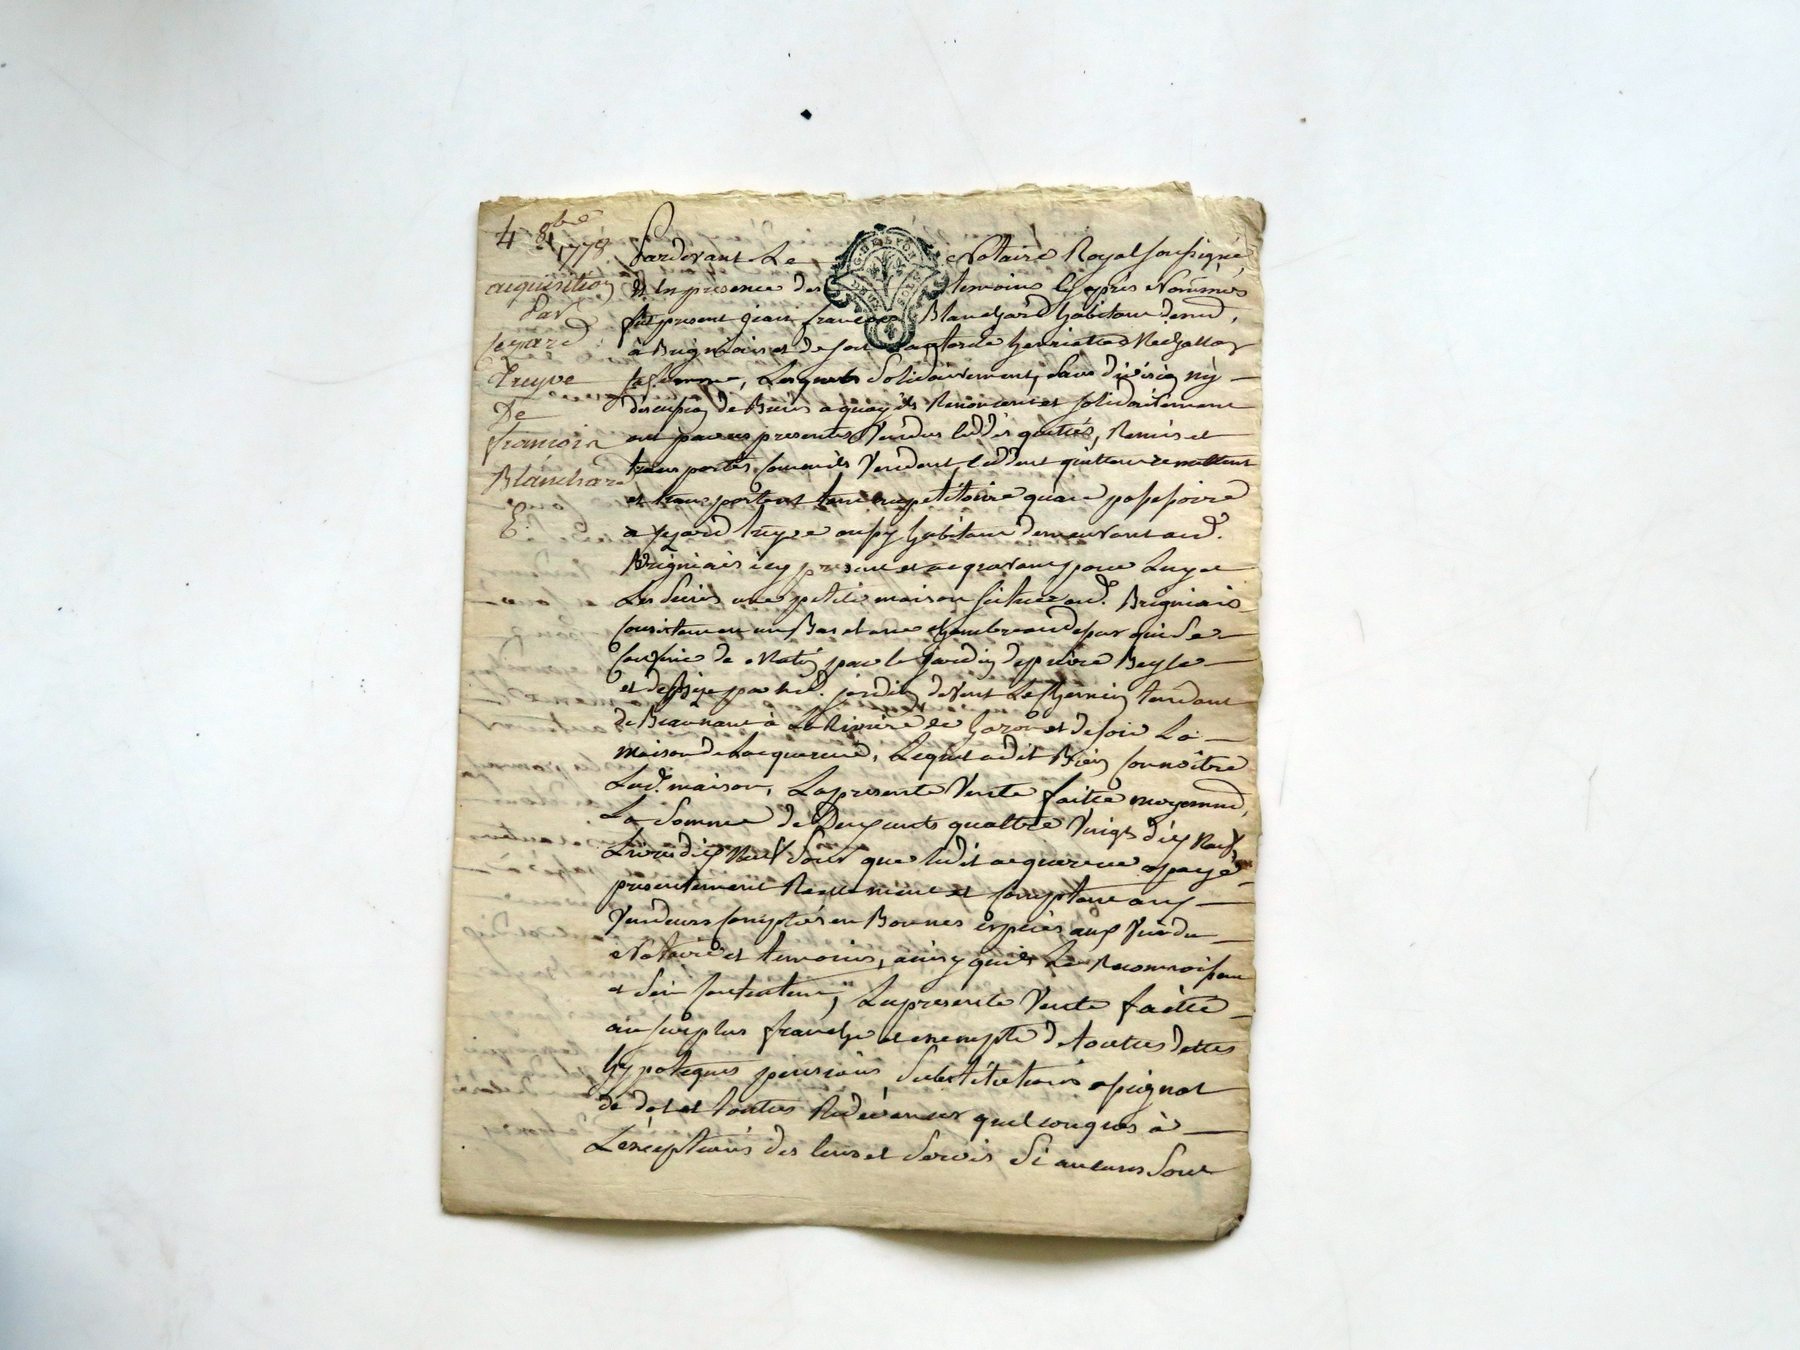 4 8bre 1778
acquisition
Par
Legard
Treyve
De
francois
Blanchard
Pardevant Le Notaire Royal soussigné
Et En presence des temoins cy apres Nommés
fut present francois Blanchard habitant demt
à Brigniais et de son
sa femme, Lesquels Solidairement, sans division ny
discution de Biens a quoy ils Renoncent et solidairement
ont par ces presentes Vendus cédés quittés, Remis et
transportés comme ils Vendent, cèdent quittent remettent
et transportent tant au petitoire qu'au possessoire
a treyve aussy habitant demeurant aud.
Brigniais icy present et acquerant pour Luy et
Les Siens une petite maison situee aud. Brigniais
Consistant en un Bas et une chambre au dessus qui se
Confine de Matin par le jardin de pierre
et de Bize par led. jardin de Vent Le Chemin tendant
de Beaunant à La Riviere de Garon et de soir La
maison de Lacquereur, Lequel a dit Bien Connoître
Lad. maison, La presente Vente faitte moyennt
La Somme de Deux cents quattre Vingt dix Neuf
Livres dix Neuf Sous que ledit acquereur a payé
presentement Reellement et Comptant aux
Vendeurs Comptés en Bonnes espèces aux Vu du
Notaire et temoins, ainsy qu'ils Le Reconnoissent
et s'en contentent, La presente Vente faitte
au surplus franche et exempte de touttes dettes
hypoteques pensions, Substitutions
de dot et touttes Redevances quelconques à
L'exceptions des Cens et Servis Si aucuns Sont